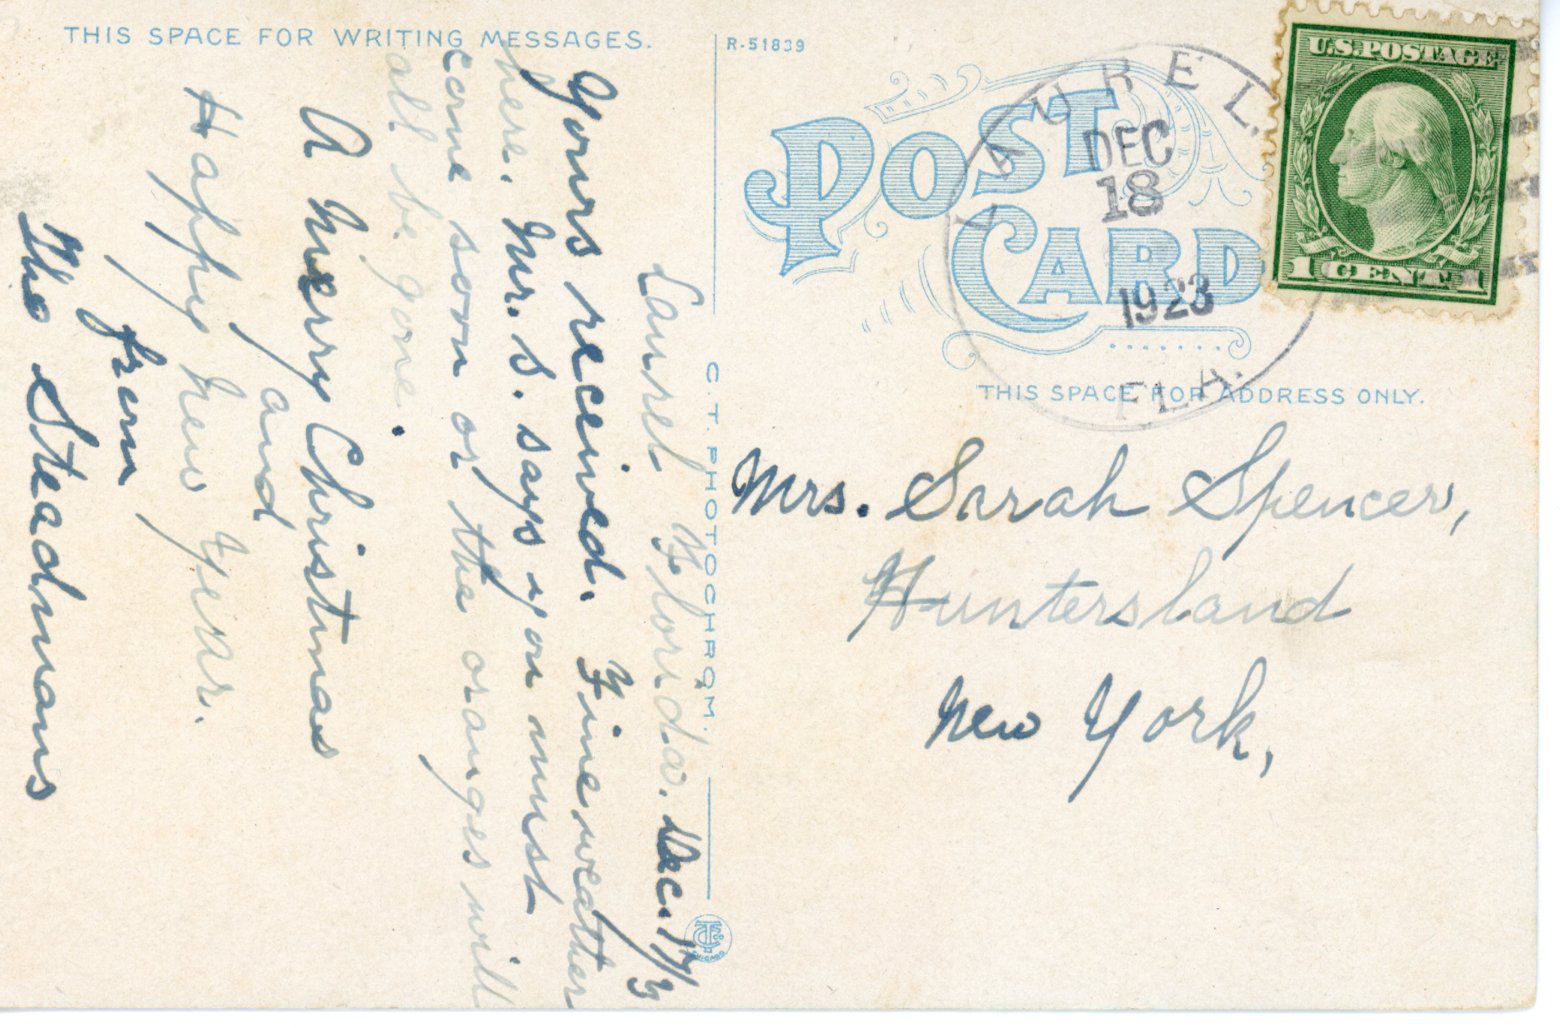 THIS SPACE FOR WRITING MESSAGES.
Laurel Florida. Dec. 17/3
Yours received. Fine weather
here. Mr. S. says you must
come soon or the oranges will
all be gone.
A Merry Christmas
and
Happy New Year.
from
The Steadmans
R-51839
C. T. PHOTOCHROM.
POST
CARD
LAUREL.
DEC
18
1923
FLA.
U.S. POSTAGE
1 CENT 1
THIS SPACE FOR ADDRESS ONLY.
Mrs. Sarah Spencer,
Huntersland
New York,
CHICAGO